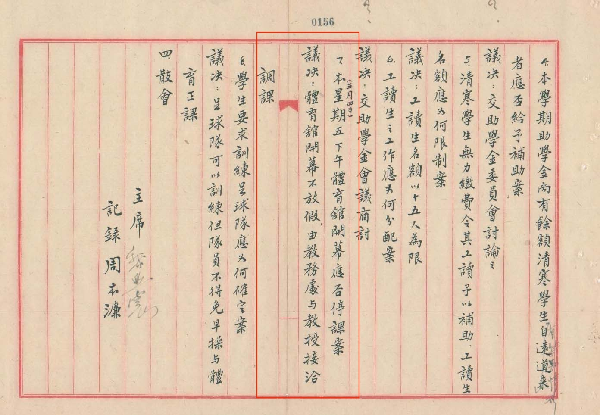 0156
4.本學期助學金尚有餘額清寒學生自遠道來
者應否給予補助案
議決：交助學金委員會討論之
5.清寒學生無力繳費令其工讀予以補助，工讀生
名額應如何限制案
議決：工讀生名額以十五人為限
6.工讀生之工作應如何分配案
議決：交助學金會議商討
7.本星期五下午體育館開幕應否停課案
議決：體育館開幕不放假由教務處与教授接洽
調課
8.學生要求訓練足球隊應如何確定案
議決：足球隊可以訓練但隊員不得免早操与體
育正課
四、散會
主席
記錄 周本濂